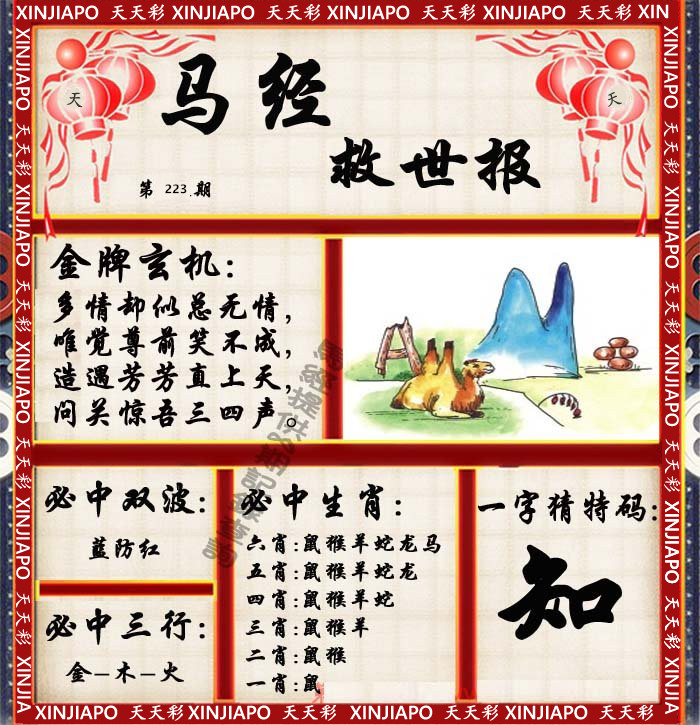 XINJIAPO 天天彩 XINJIAPO 天天彩 XINJIAPO 天天彩 XIN
天
天
马经
救世报
第 223.期
金牌玄机:
多情却似总无情,
唯觉尊前笑不成,
造遇芳芳直上天,
问关惊吾三四声。
必中双波:
蓝防红
必中三行:
金-木-火
必中生肖:
六肖:鼠猴羊蛇龙马
五肖:鼠猴羊蛇龙
四肖:鼠猴羊蛇
三肖:鼠猴羊
二肖:鼠猴
一肖:鼠
一字猜特码:
知
XINJIAPO 天天彩 XINJIAPO 天天彩 XINJIAPO 天天彩 XINJIA
XINJIAPO 天天彩 XINJIAPO 天天彩 XINJIAPO 天天彩 XINJIA
XINJIAPO 天天彩 XINJIAPO 天天彩 XINJIAPO 天天彩 XINJIAPO